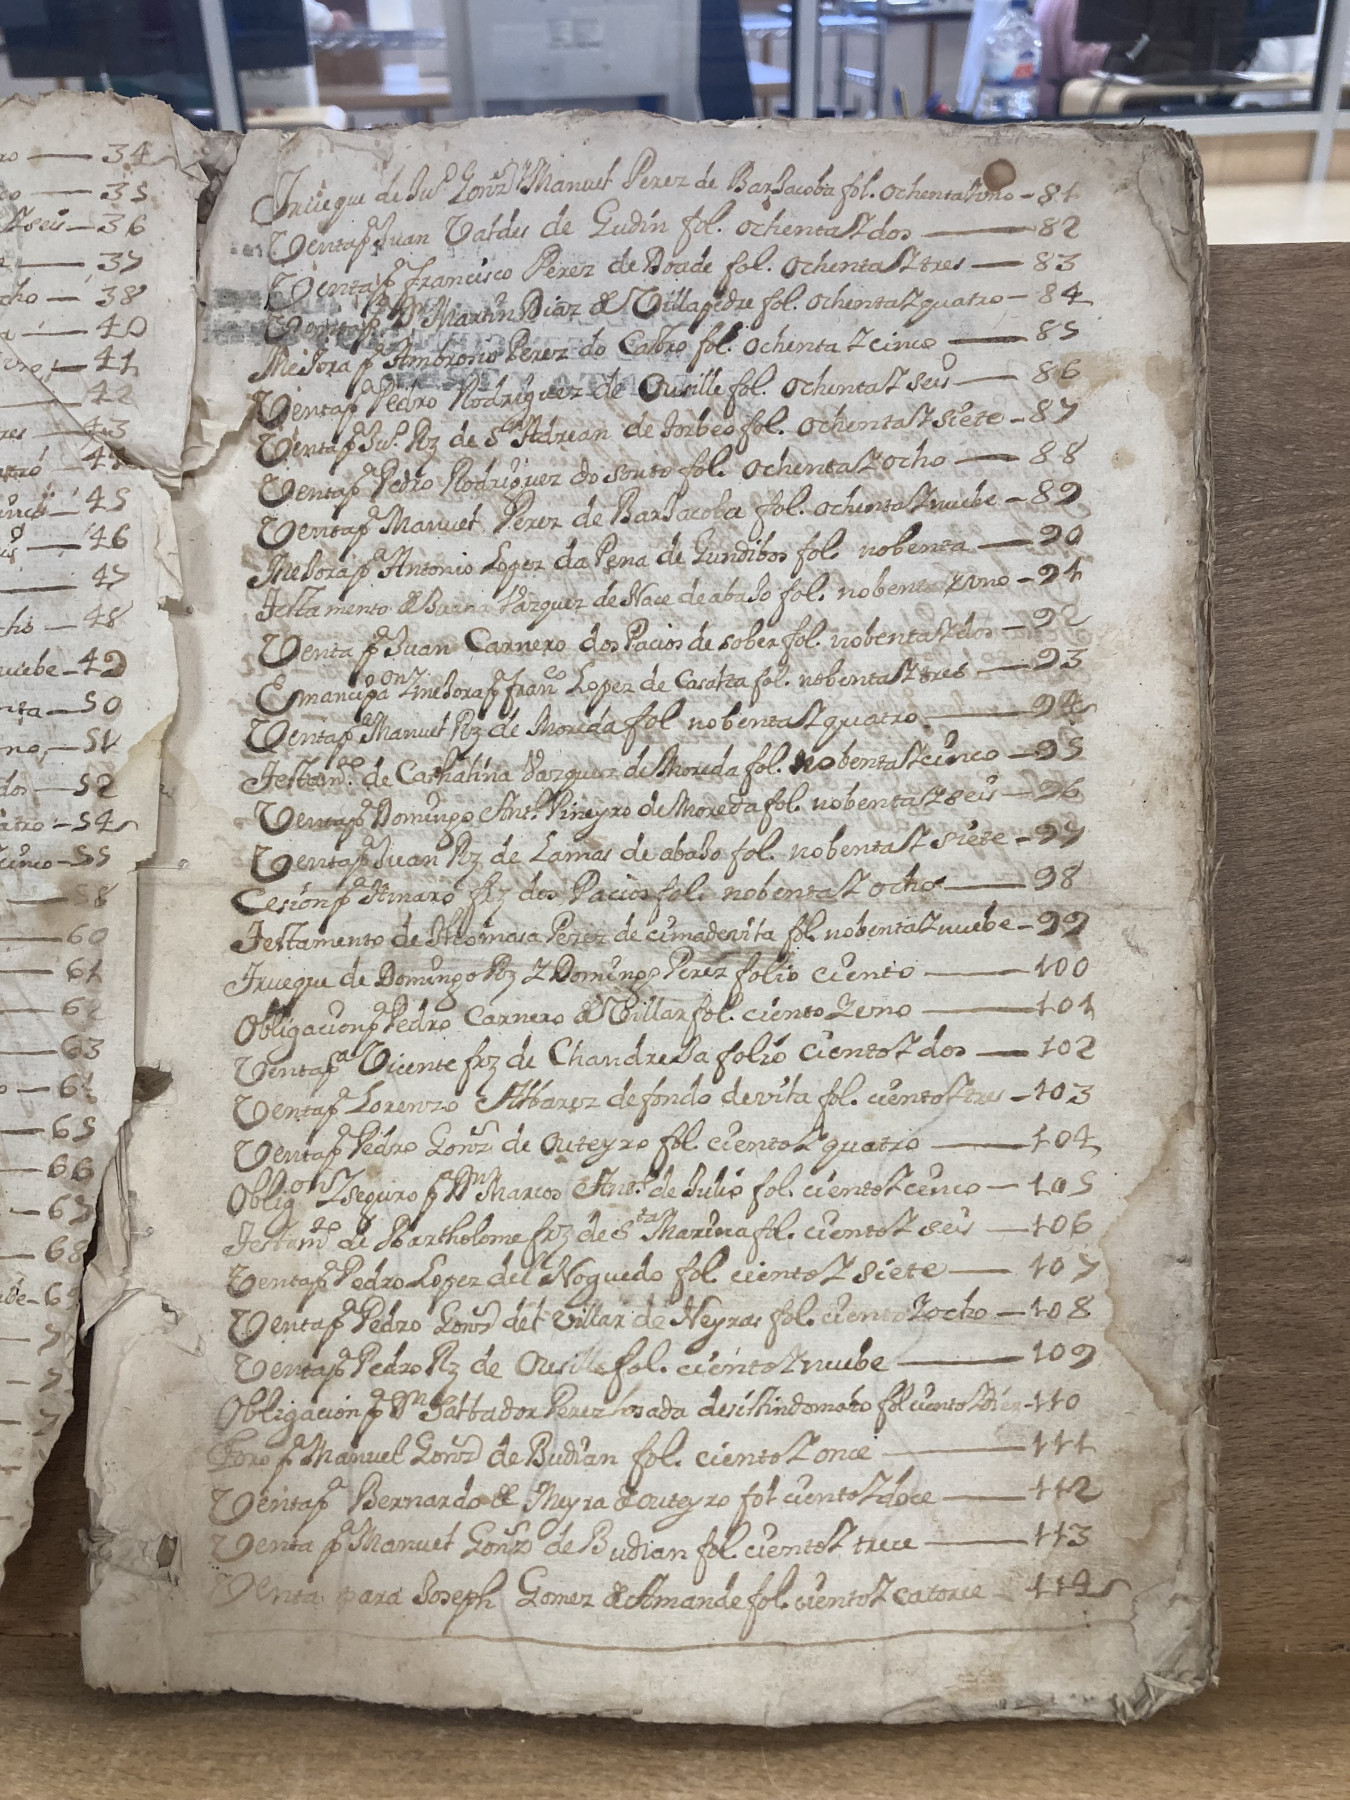 ro — 34
35
seis — 36
37
cho — 38
40
41
42
res — 43
45
46
47
48
nuebe — 49
nta — 50
no, — 51
dos — 52
atro — 54
cinco — 55
58
60
61
62
63
65
66
68
Trueque de Ju.º Gonz.z Manuel Perez de Barxacoba fol. ochenta y uno — 81
Venta p.ª Juan Valdes de Gudin fol. ochenta y dos — 82
Venta p.ª Francisco Perez de Boade fol. ochenta y tres — 83
Venta p.ª Dn Martin Diaz de Villapedre fol. ochenta y quatro — 84
Mexora p.ª Ambrosio Perez do Castro fol. ochenta y cinco — 85
Venta p.ª Pedro Rodriguez de Ousille fol. ochenta y seis — 86
Venta p.ª Ju.º Rz de Sn Adrean de Lorbeo fol. ochenta y siete — 87
Venta p.ª Pedro Rodriguez do Souto fol. ochenta y ocho — 88
Venta p.ª Manuel Perez de Barxacoba fol. ochenta y nuebe — 89
Mexora p.ª Antonio Lopez da Pena de Gundibos fol. nobenta — 90
Testamento de Vazquez de Nace de abaxo fol. nobenta y uno — 91
Venta p.ª Juan Carnero dos Pacios de sober fol. nobenta y dos — 92
Emancipa.on y mexora p.ª Fran.co Lopez de Casalta fol. nobenta y tres — 93
Venta p.ª Manuel Rz de Moreda fol nobenta y quatro — 94
Testam.to de Cathalina Vazquez de Moreda fol. nobenta y cinco — 95
Venta p.ª Domingo Ant.º Pineyro de Moreda fol. nobenta y seis — 96
Venta p.ª Juan Rz de Lamas de abaxo fol. nobenta y siete — 97
Cesion p.ª Amaro frz dos Pacios fol. nobenta y ocho — 98
Testamento de Thomasa Perez de cimadevila fol. nobenta y nuebe — 99
Trueque de Domingo Rz y Domingo Perez folio ciento — 100
Obligacion p.ª Pedro Carnero de Villar fol. ciento y uno — 101
Venta p.ª Vicente frz de Chandrexa folio ciento y dos — 102
Venta p.ª Lorenzo Albarez de fondo devila fol. ciento y tres — 103
Venta p.ª Pedro Gonz.z de Outeyro fol. ciento y quatro — 104
Oblig.on y seguro p.ª Dn Marcos Ant.º de Julio fol. ciento y cinco — 105
Testam.to de Bartholome frz de S.ta Marina fol. ciento y seis — 106
Venta p.ª Pedro Lopez del Noguedo fol. ciento y siete — 107
Venta p.ª Pedro Gonz.z del Villar de Neyras fol. ciento y ocho — 108
Venta p.ª Pedro Rz de Ousille fol. ciento y nuebe — 109
Obligacion p.ª Dn Salbador Perez Losada de fol ciento y diez — 110
Foro p.ª Manuel Gonz.z de Budian fol. ciento y once — 111
Venta p.ª Bernardo de Neyra de outeyro fol ciento y doce — 112
Venta p.ª Manuel Gonz.z de Budian fol. ciento y trece — 113
Venta para Joseph Gomez de Amande fol. ciento y catorce — 114